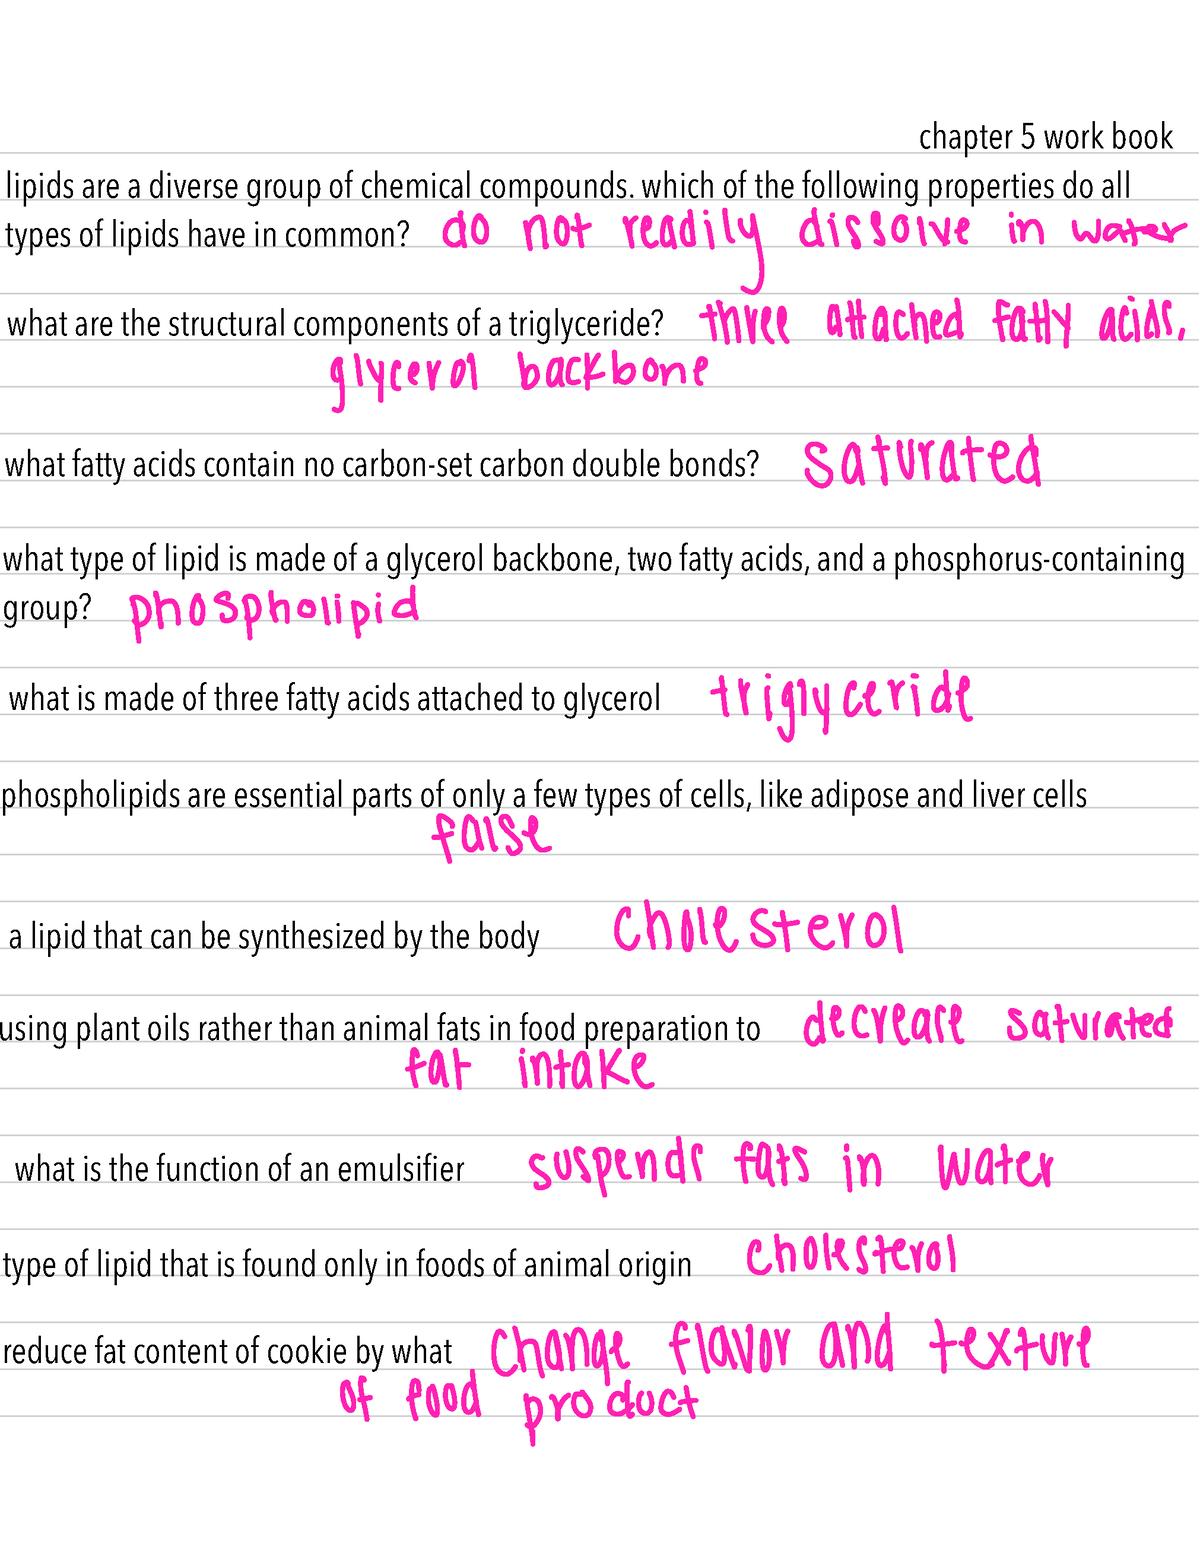 chapter 5 work book
lipids are a diverse group of chemical compounds. which of the following properties do all
types of lipids have in common? do not readily dissolve in water
what are the structural components of a triglyceride? three attached fatty acids,
glycerol backbone
what fatty acids contain no carbon-set carbon double bonds? saturated
what type of lipid is made of a glycerol backbone, two fatty acids, and a phosphorus-containing
group? phospholipid
what is made of three fatty acids attached to glycerol triglyceride
phospholipids are essential parts of only a few types of cells, like adipose and liver cells
false
a lipid that can be synthesized by the body cholesterol
using plant oils rather than animal fats in food preparation to decrease saturated
fat intake
what is the function of an emulsifier suspends fats in water
type of lipid that is found only in foods of animal origin cholesterol
reduce fat content of cookie by what change flavor and texture
of food product